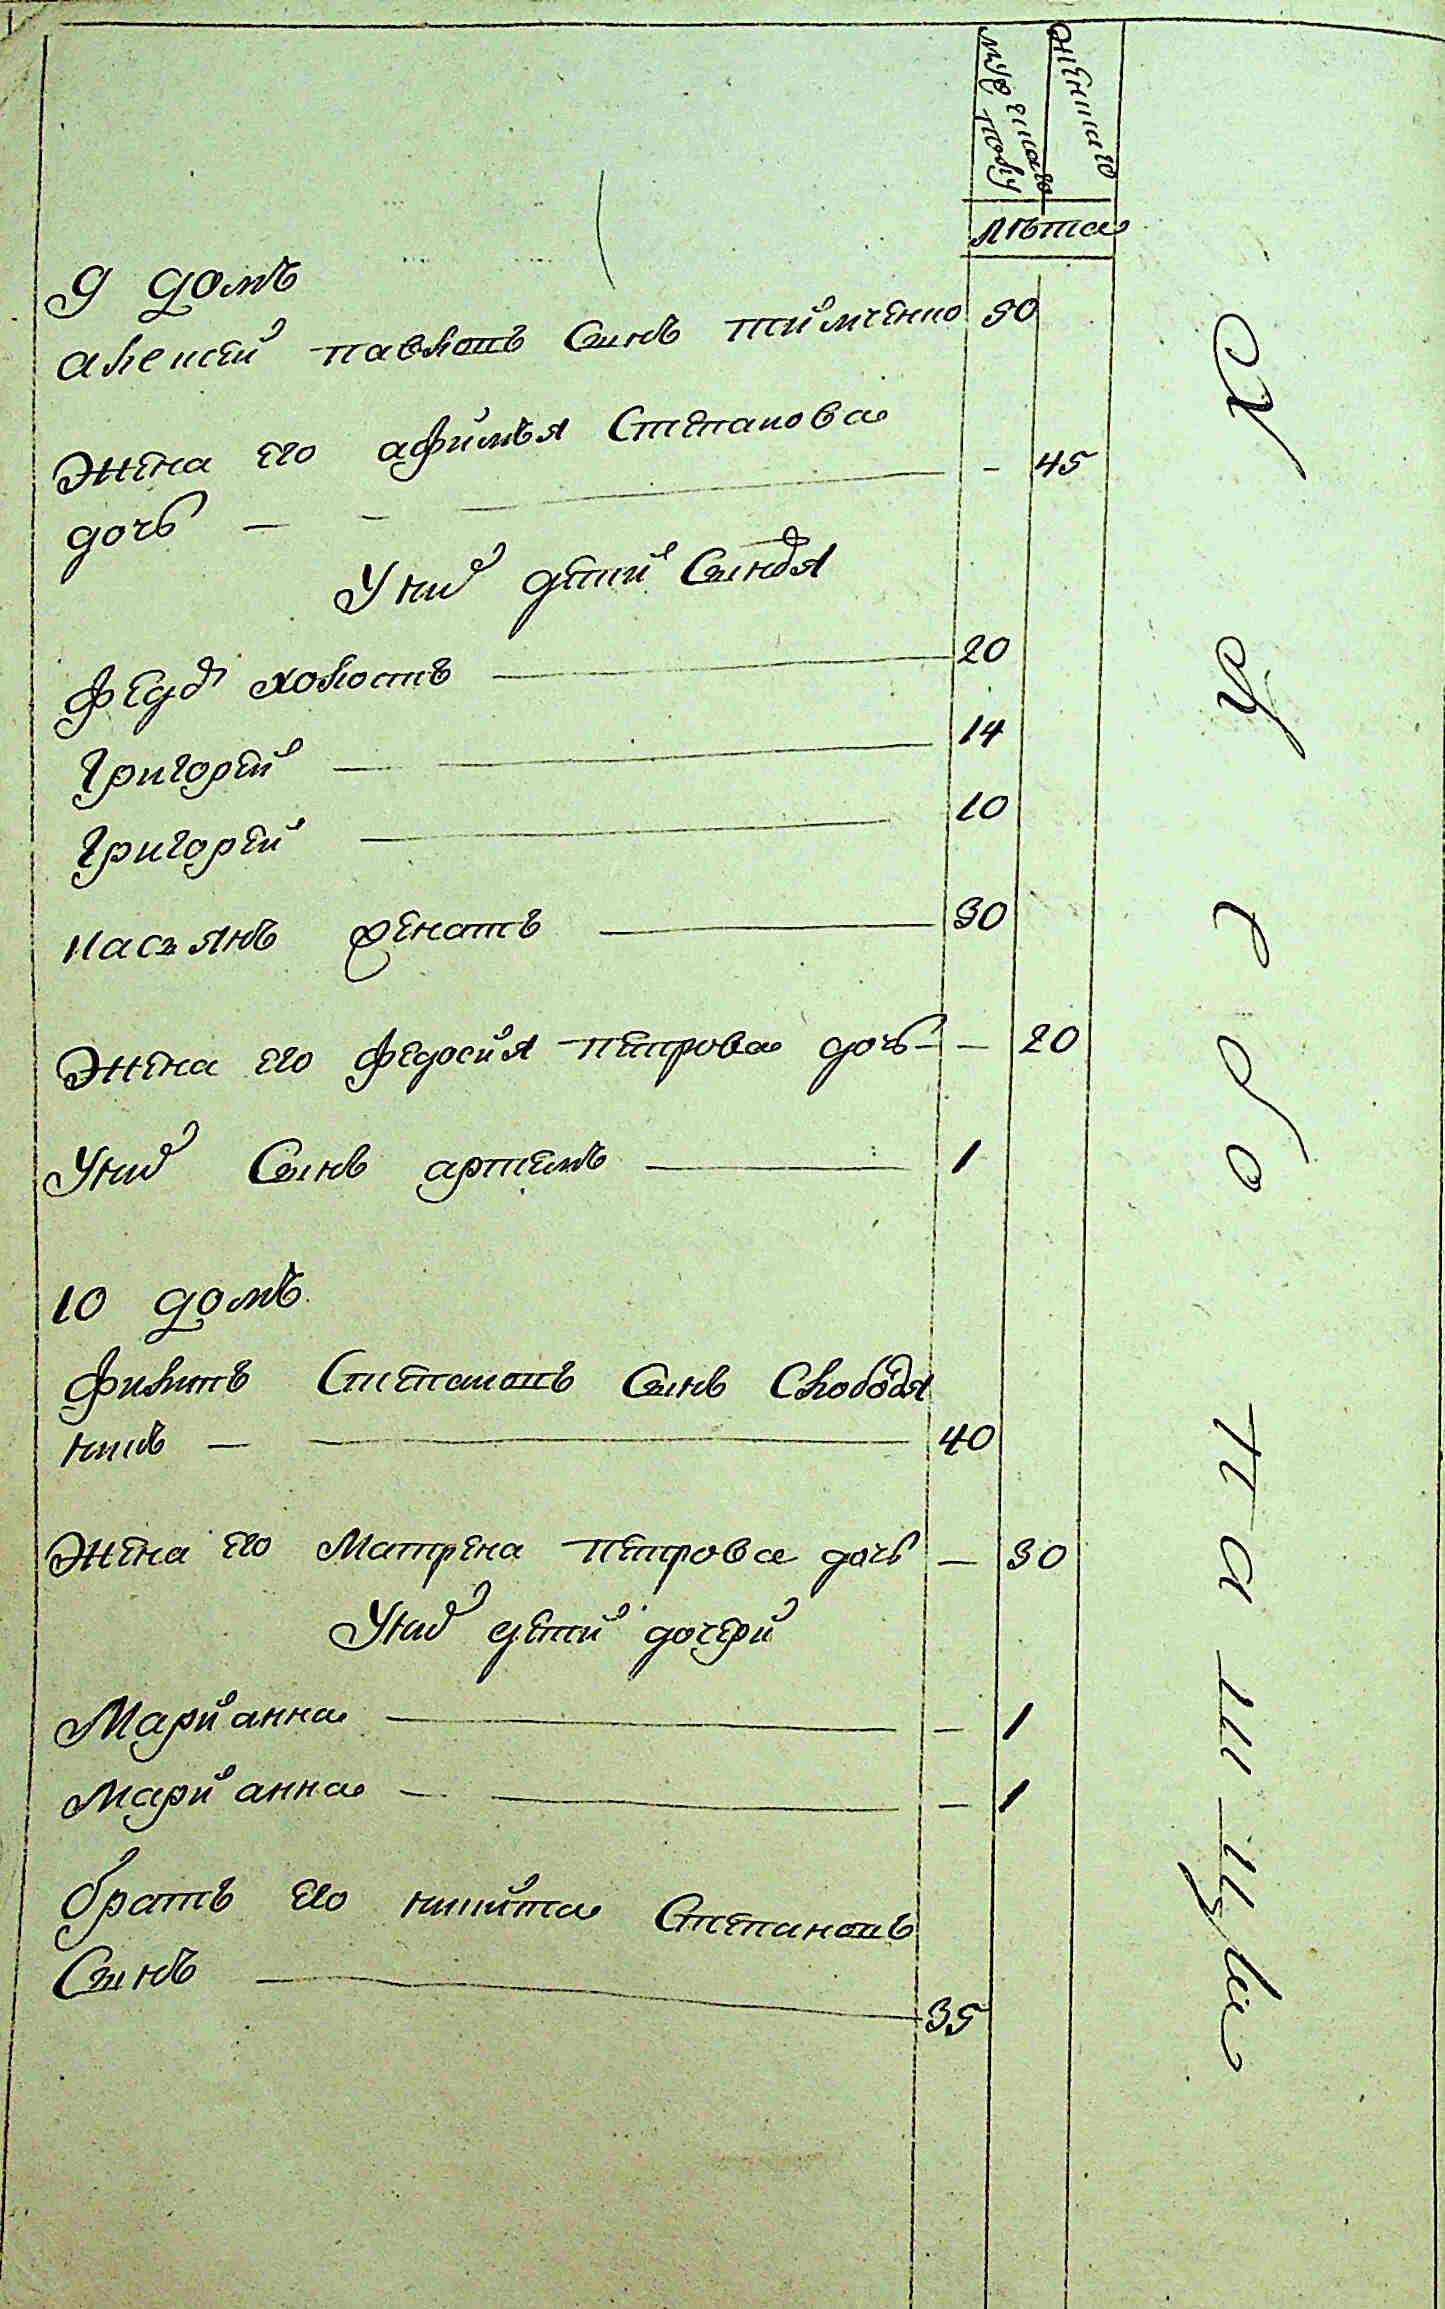 мужескаго полу
женскаго
лѣта
9 домъ
алексей павловъ синъ тимченко 50
жена его афимъя Степанова
дочь — — — — 45
У них дети синовя
федор холостъ — 20
Григорей — 14
Григорей — 10
касъянъ женатъ — 30
жена его федосия петрова дочь — — 20
У них синъ артемъ — 1
10 домъ
филипъ Степановъ синъ Слободя
никъ — — 40
жена его Матрена петрова дочь — 30
У них дети дочери
Марианна — — 1
Марианна — — — 1
братъ его никита Степановъ
Синъ — 35